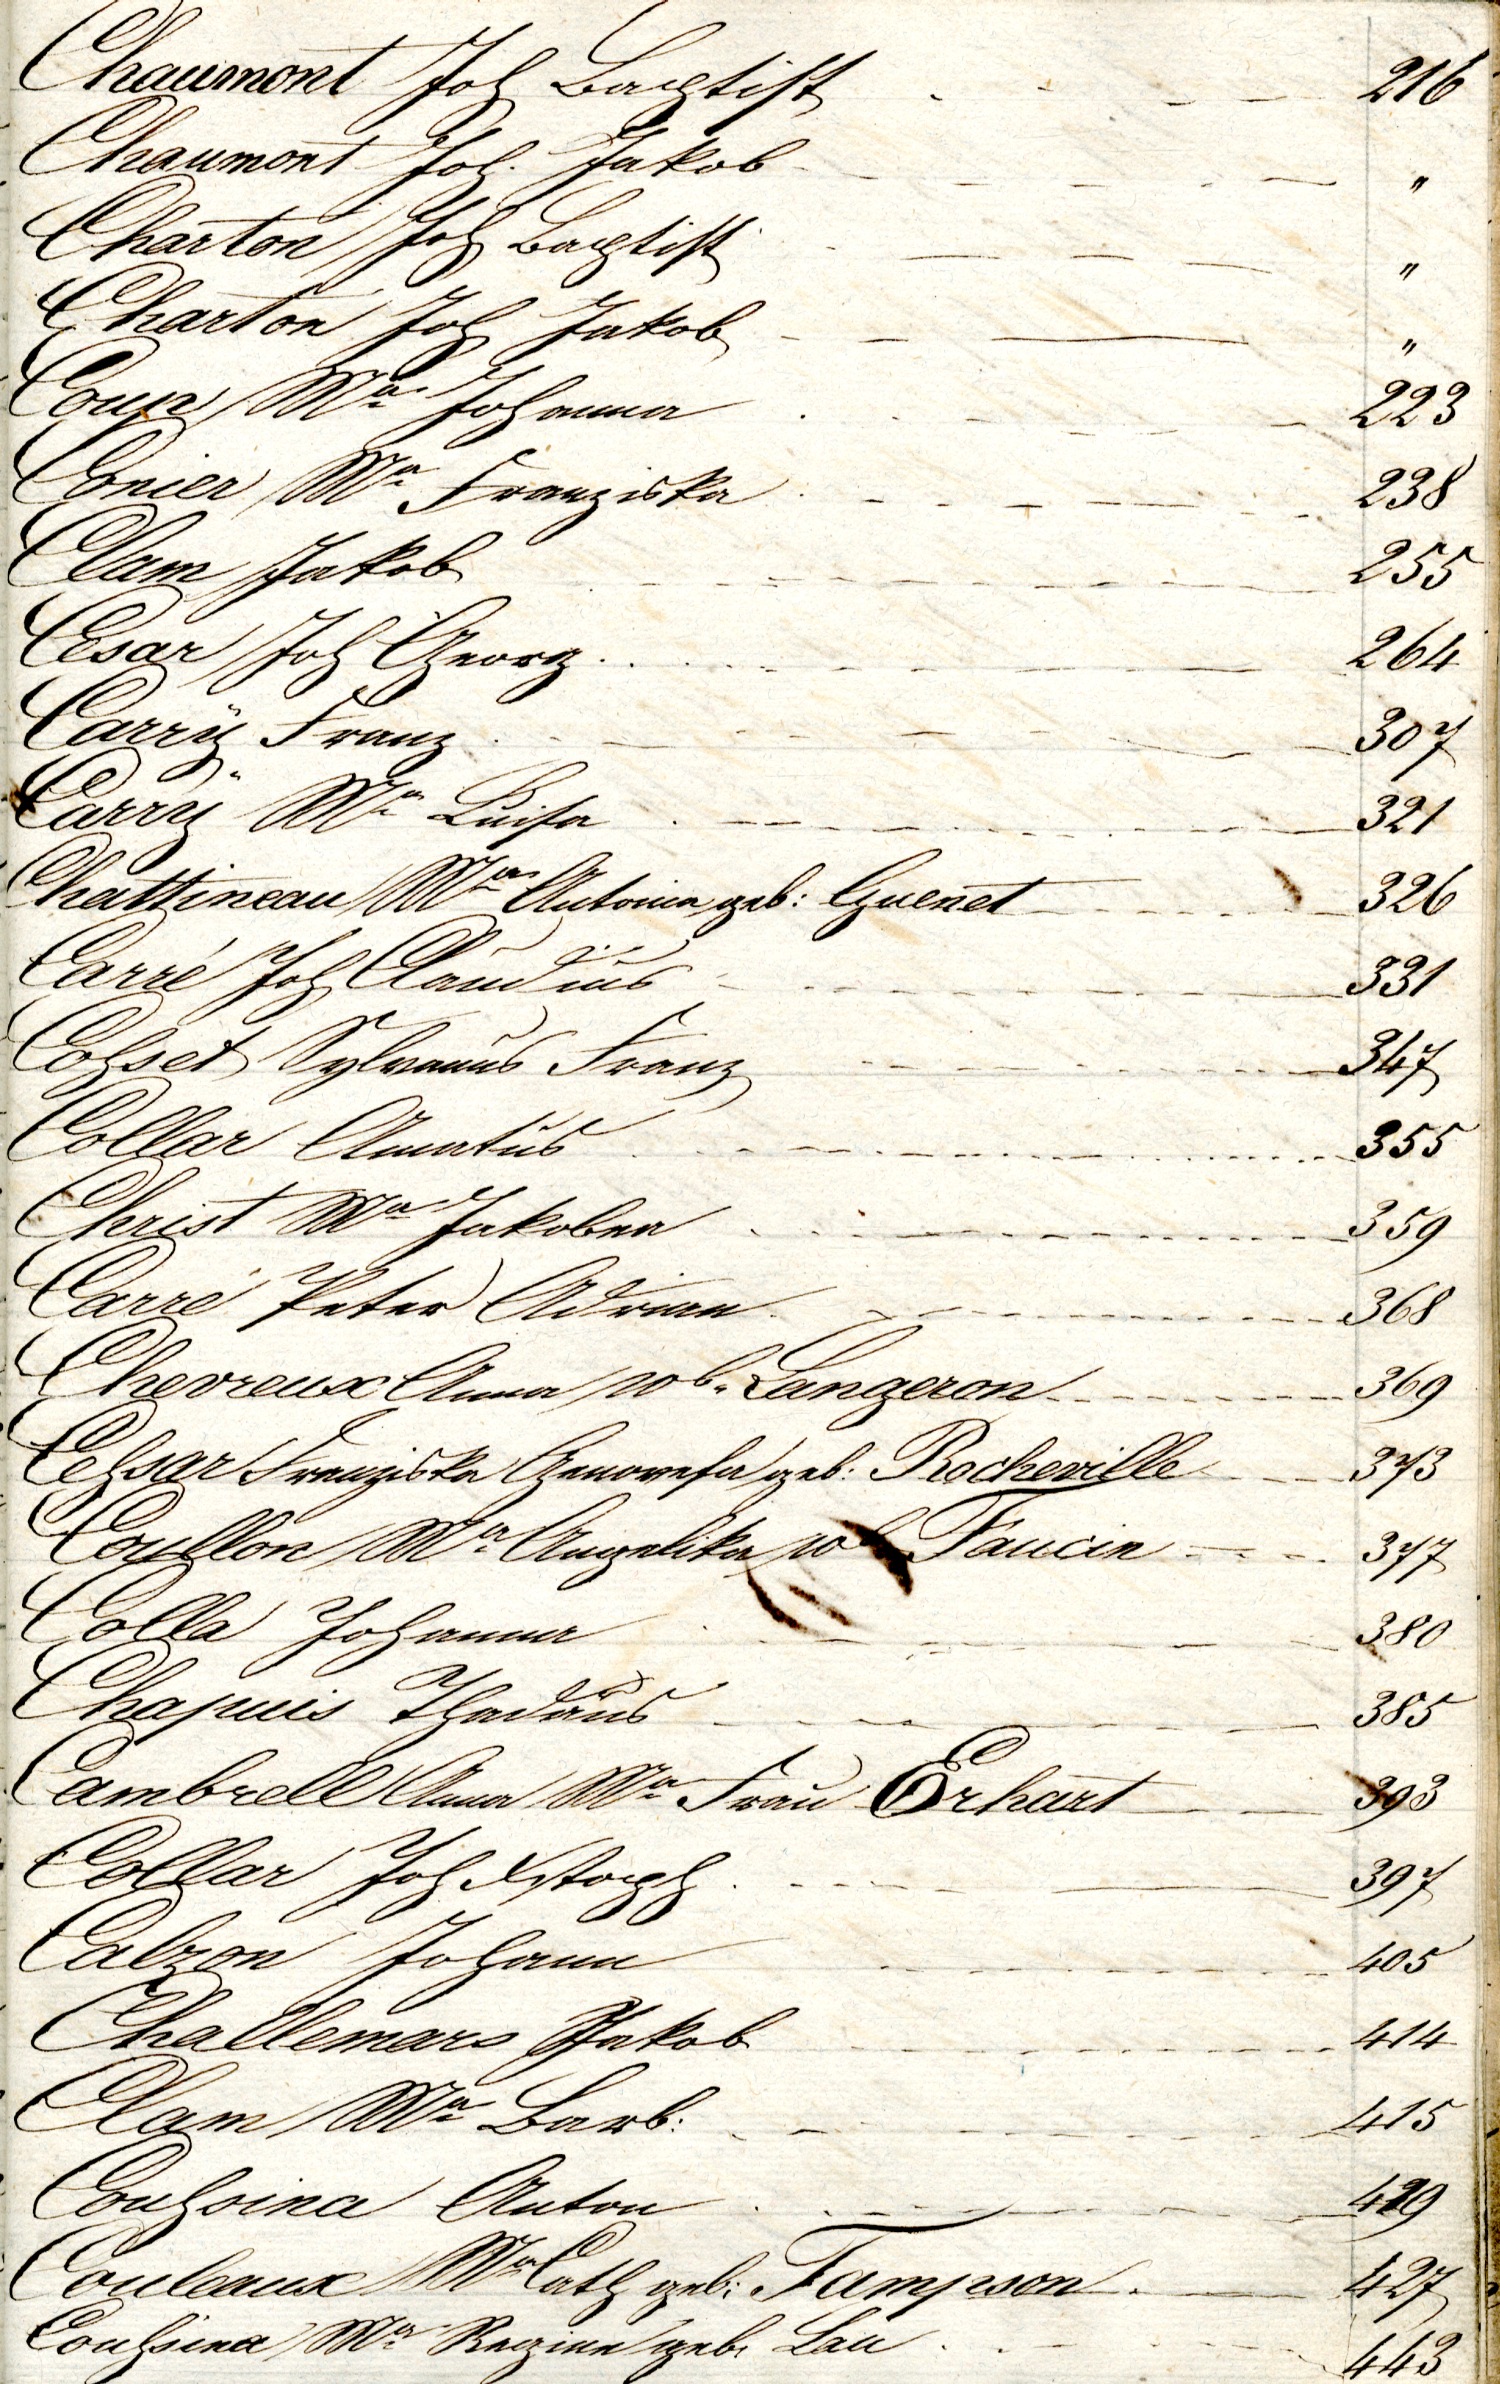 Chaumont Joh Baptist 216
Chaumont Joh. Jakob "
Charton Joh Baptist "
Charton Joh Jakob "
Coup Ma Johanna 223
Conier Ma Franziska 238
Clam Jakob 255
Cesar Joh Georg 264
Carrÿ Franz 307
Carrÿ Ma Luisa 321
Chattineau Ma Antonia geb: Guenet 326
Carré Joh Claudius 331
Cohset Sylvanus Franz 347
Collar Amatus 355
Christ Ma Jakobea 359
Carré Peter Adrian 368
Chevreux Anna wb. Langeron 369
Cehsar Franziska Genovefa geb: Rocheville 373
Coullon Ma Angelika Faucin 377
Colla Johanna 380
Chapuis Thadäus 385
Cambrell Anna Ma Frau Erhart 393
Collar Joh Xstoph 397
Calzon Johann 405
Challemars Jakob 414
Clam Ma Barb: 415
Couhsina Anton 419
Couleaux Ma Cath geb: Tampson 427
Couhsina Ma Regina geb. Lau 443